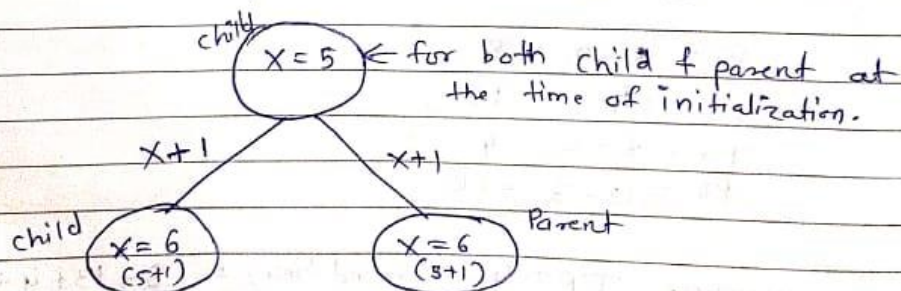 child
X = 5 ← for both child & parent at
the time of initialization.
X+1 X+1
child Parent
X = 6 X = 6
(5+1) (5+1)